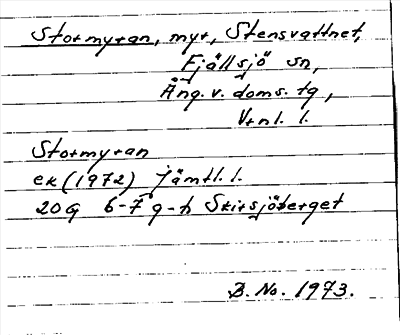 Stormyran, myr, Stensvattnet,
Fjällsjö sn,
Äng. v. doms. tg,
Vrnl. l.
Stormyran
ek (1972) Jämtl. l.
20G 6-7 g-h Skirsjöberget
B. No. 1973.